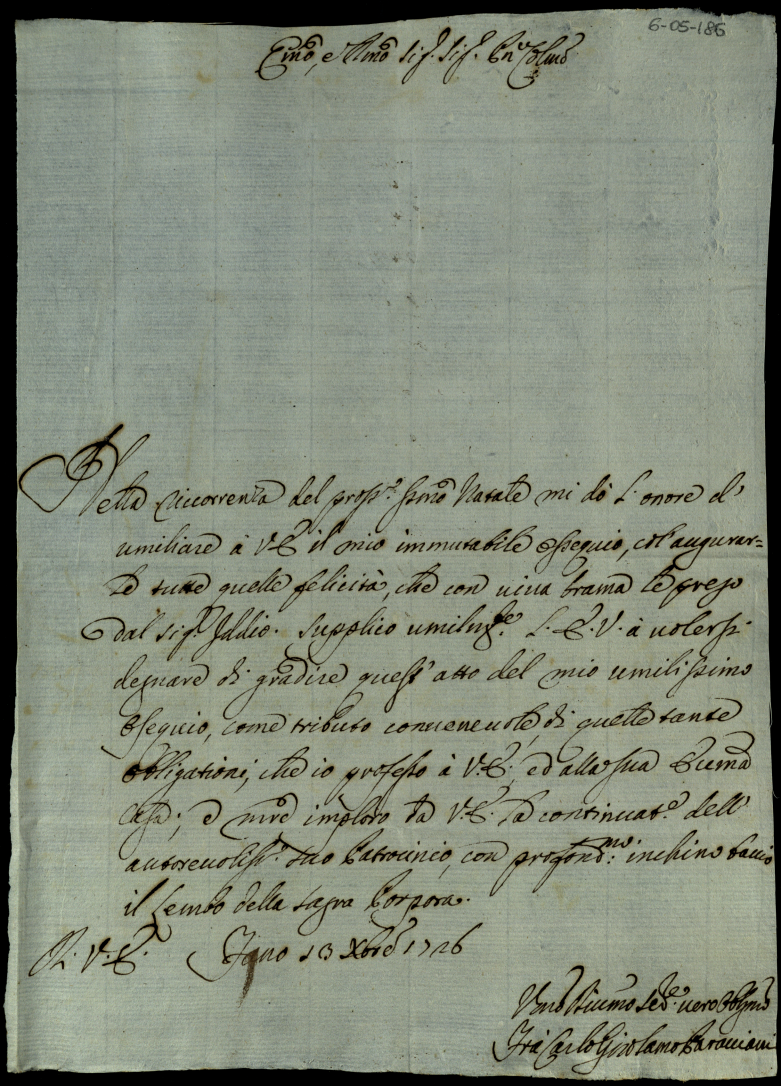 6-05-186
Emo, e Rmo Sig.r Sig.r Pn'e Colmo
Nella ricorrenza del pross.o ssimo Natale mi dò l'onore d'
umiliare à V.E. il mio immutabile osequio, coll'augurar=
le tutte quelle felicità, che con viva brama le prego
dal Sig.r Iddio. Supplico umilm.te L.E.V. à volersi
degnare di gradire quest'atto del mio umilissimo
osequio, come tributo convenevole, di quelle tante
obbligationi, che io professo à V.E., ed alla sua Eccma
Casa; e mre imploro da V.E. la continuat.e dell'
autorevoliss.o suo Patrocinio, con profond.mo inchino bacio
il lembo della sagra Porpora.
Di V.E. Fano 13 Xbre 1726
Vmo Divmo Se.re vero Obbmo
Frà Carlo Girolamo